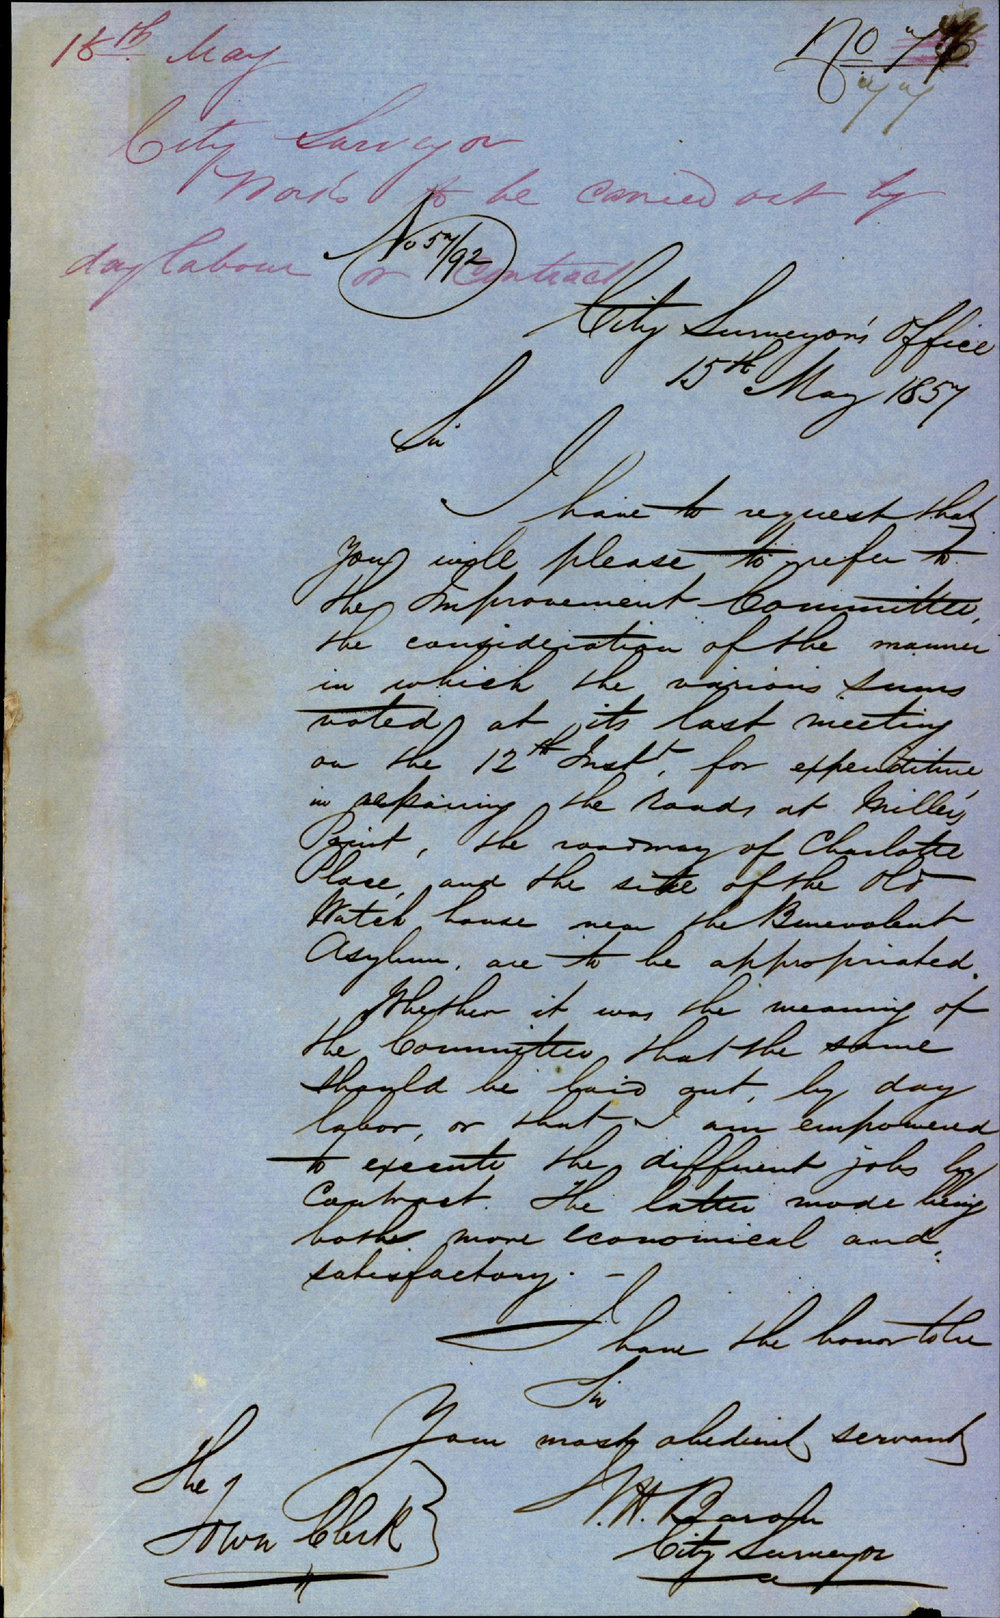 15th May
No 77
77
City Surveyor
Works to be carried out by
day labour or Contract
No 57/92
City Surveyor's Office
15th May 1857
Sir
I have to request that
you will please to refer to
the Improvement Committee,
the consideration of the manner
in which the various sums
voted at its last meeting
on the 12th Inst, for expenditure
in repairing the Roads at Miller's
Point, the roadway of Charlotte
Place, and the site of the Old
Watch house near the Benevolent
Asylum, are to be appropriated.
Whether it was the meaning of
the Committee that the same
should be laid out, by day
labor, or that I am empowered
to execute the different jobs by
Contract. The latter mode being
both more economical and
satisfactory. –
I have the honor to be
Sir
Your most obedient servant
City Surveyor
The
Town Clerk